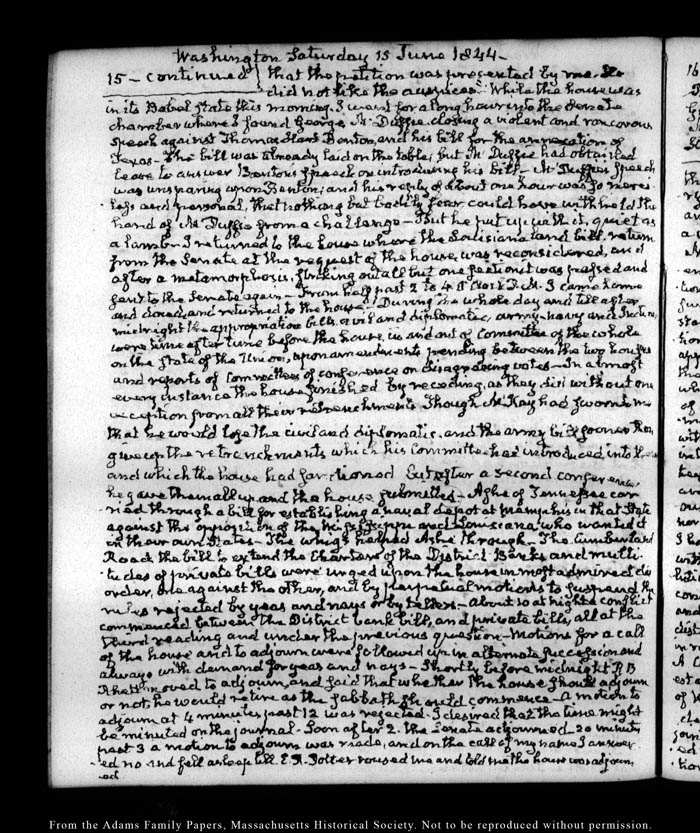 Washington Saturday 15 June 1844-
15 - continued } that the petition was presented by me. He
did not like the auspices. While the house was
in its Babel state this morning, I went for a long hour into the Senate
chamber where I found George Mc Duffie, closing a violent and rancorous
speech against Thomas Hart Benton, and his bill for the annexation of
Texas - The bill was already laid on the table; but Mc Duffie had obtained
leave to answer Benton's speech on introducing his bill - Mc Duffie's speech
was unsparing upon Benton; and his reply of about one hour was so merci-
less and personal, that nothing but bodily fear could have withheld the
hand of Mc Duffie from a challenge - But he put up with it, quiet as
a lamb - I returned to the house where the Louisiana land bill, return
from the Senate at the request of the house, was reconsidered, and
after a metamorphosis, striking out all but one section it was passed and
sent to the Senate again - From half past 2 to 4 O'Clock P.M. I came home
and dined, and returned to the house - During the whole day and till after
midnight the appropriation bills, civil and diplomatic, army - navy and
were time after time before the house, in and out of Committee of the whole
on the state of the Union, upon amendments pending between the two houses
and reports of Committees of conference on disagreeing votes - In almost
every instance the house finished by receding, as they did without one
exception from all their retrenchments. Though Mc Kay had sworn to me
that he would lose the civil and diplomatic, and the army bill sooner than
give up the retrenchments which his Committee had introduced into them
and which the house had sanctioned But after a second conference,
he gave them all up, and the house submitted - Ashe of Tennessee car
ried through a bill for establishing a naval depot at Memphis in that State
against the opposition of the Mississippi and Louisiana who wanted it
in their own States - The whigs helped Ashe through - The Cumberland
Road the bill to extend the Charters of the District Banks and multi
tudes of private bills were urged upon the house in most admired dis
order, one against the other, and by perpetual motions to suspend the
rules rejected by yeas and nays or by tellers - about 10 at night a conflict
commenced between the District bank bill, and private bills, all at the
third reading and under the previous question - Motions for a call
of the house and to adjourn were followed up in alternate succession and
always with demand for yeas and nays - Shortly before midnight R. B
Rhett moved to adjourn, and said that whether the house should adjourn
or not, he would retire as the Sabbath should commence - A motion to
adjourn at 4 minutes past 12 was rejected. I desired that the time might
be minuted on the journal. Soon after 2. the Senate adjourned - 20 minutes
past 3 a motion to adjourn was made, and on the call of my name I answer
-ed no and fell asleep till E. R. Potter roused me and told me the house was adjourn
-ed
From the Adams Family Papers, Massachusetts Historical Society. Not to be reproduced without permission.